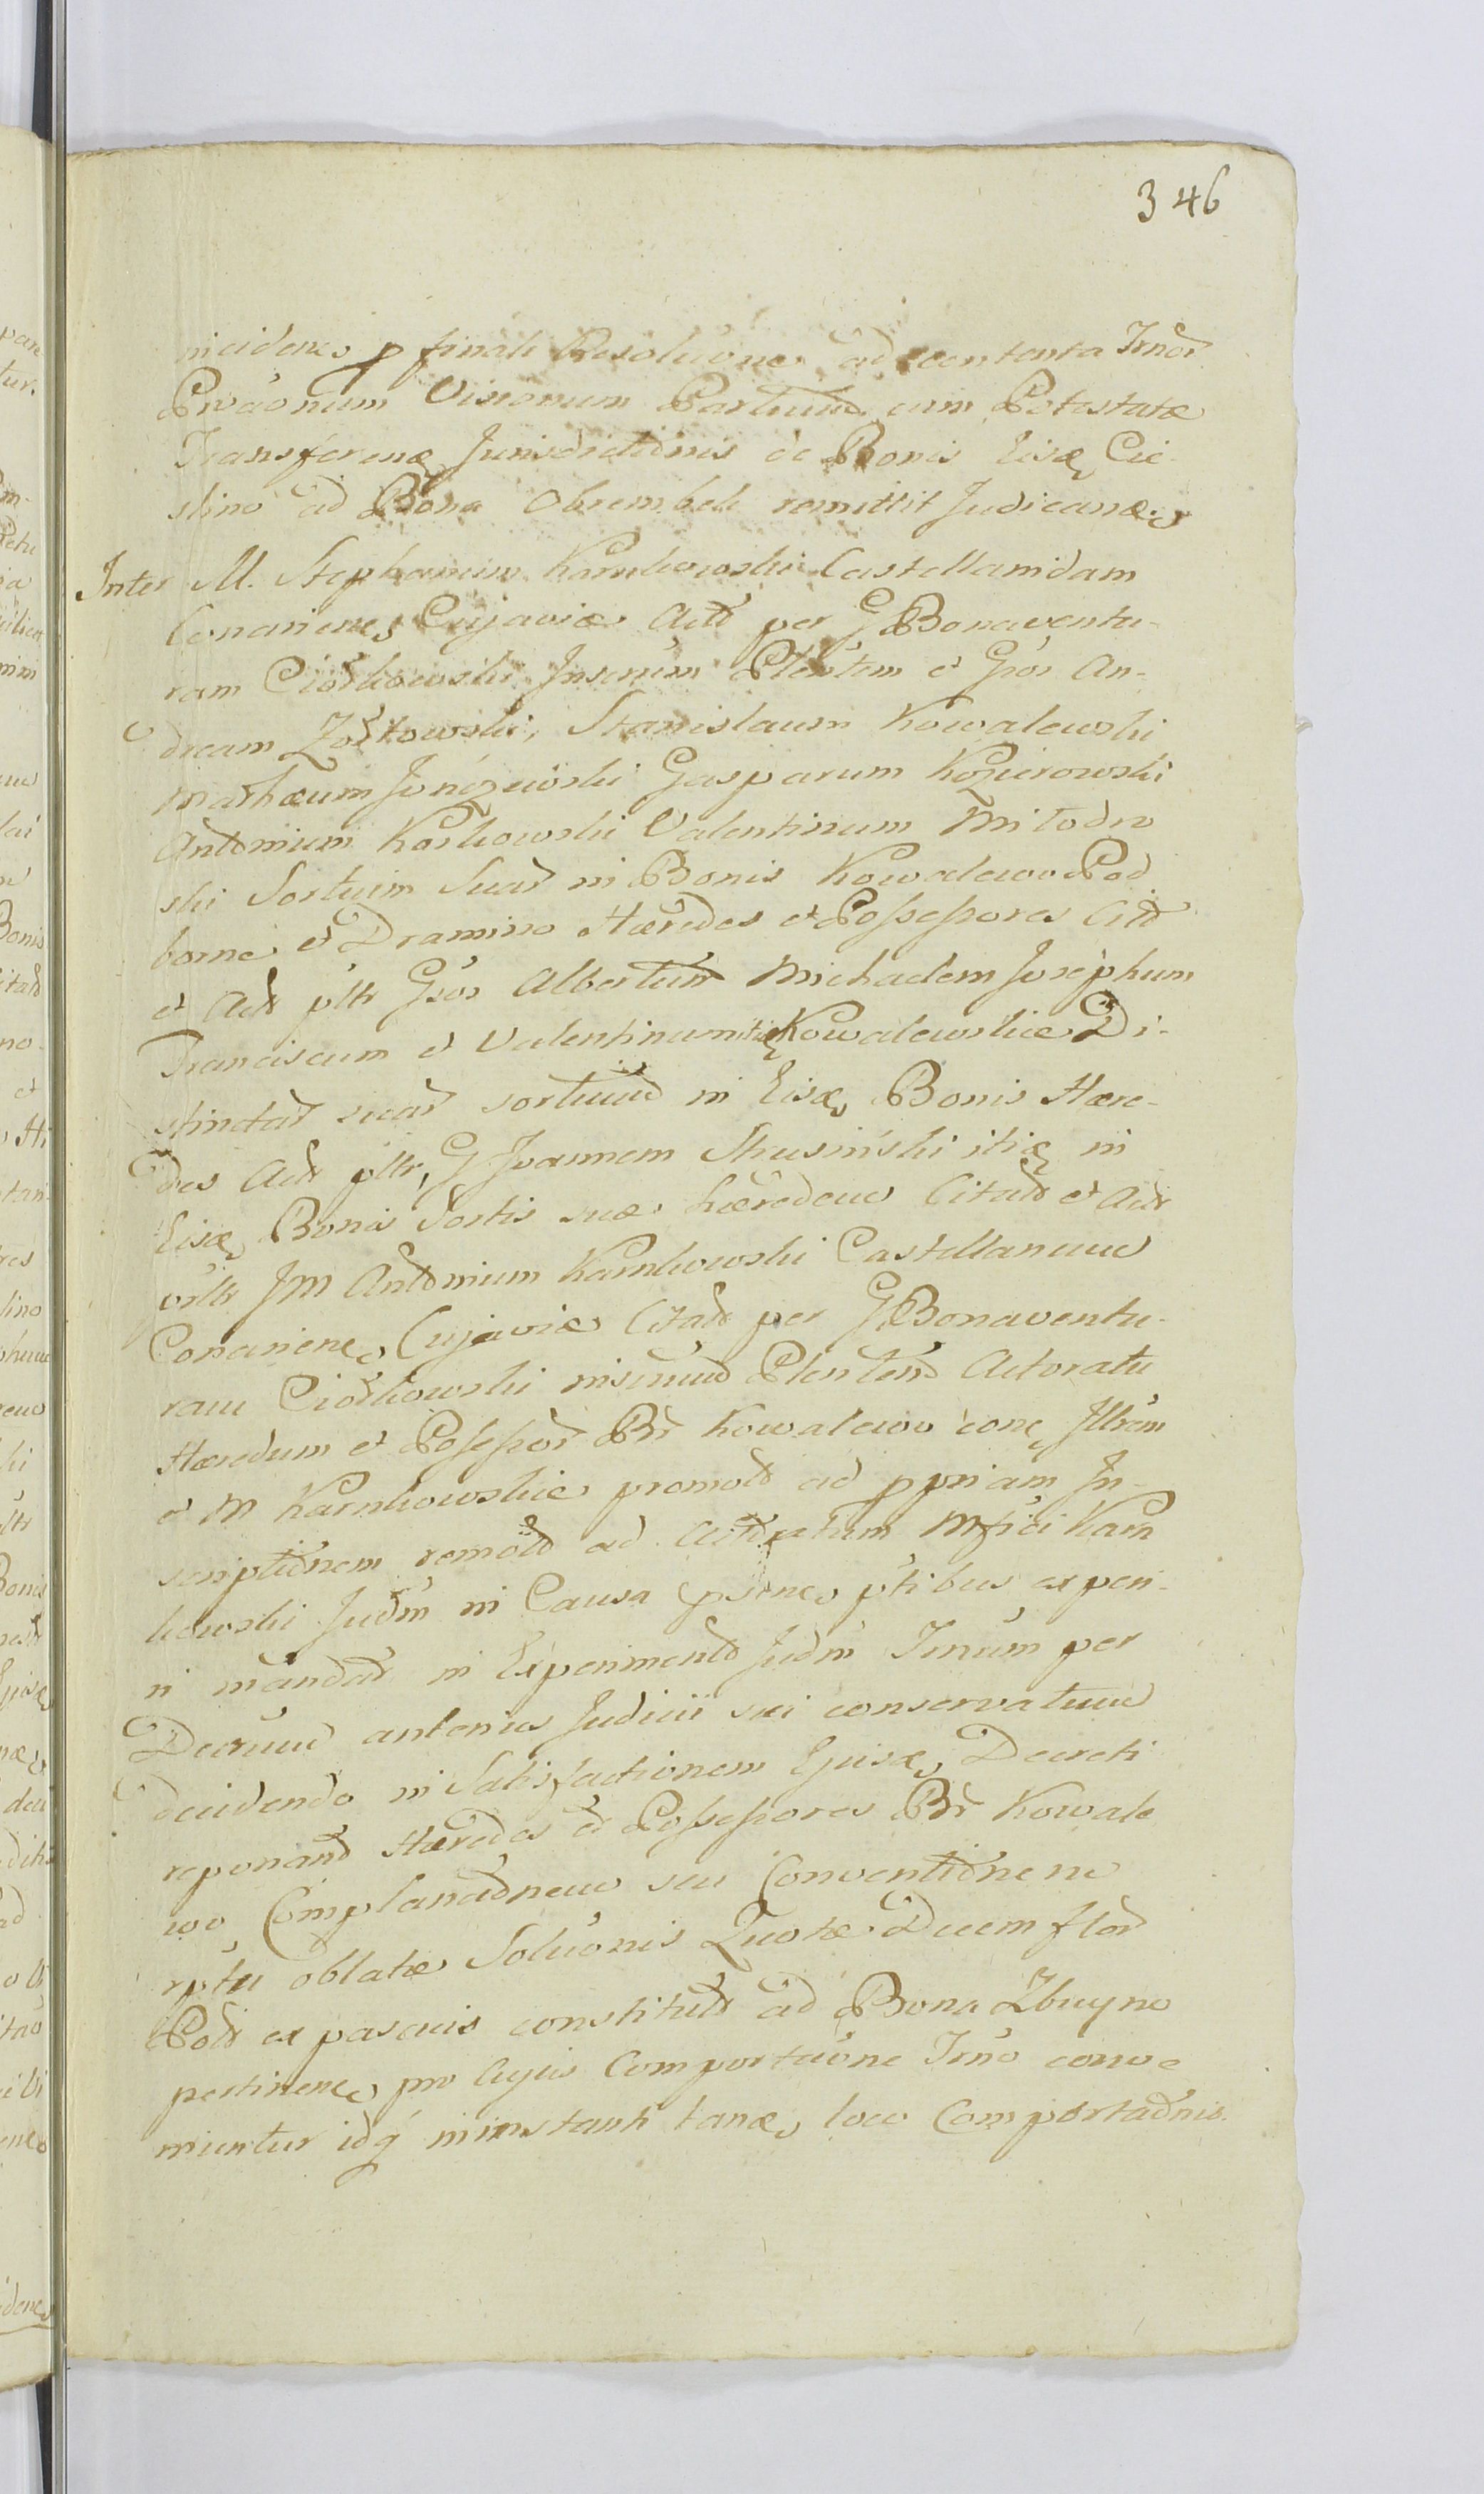 346
incidenes p finali Resolucione ad contenta Trnor
Privaonum Visionum Partiund cum Potestate
Transferenae Jurisdictionis de Bonis Eisae Cie-
slino ad Bona Obrembek remittit Judicanae
Inter M. Stephanum Karnkowski Castellanidam
Conariene Cujaviae Actt per G Bonaventu-
ram Ciołkowski Inscrum Plentem et Gsos An-
dream Zołtowski, Stanislaum Kowalewski
Mathaeum Jęnczewski Gasparum Kozierowski
Antonium Karkowski Valentinum Miłodro
ski Sortuim Suar in Bonis Kowalewo Pod
borne et Dramino Haeredes et Possessores Citt
et Actt pltr Gsos Albertum Michaelem Josephum
Franciscum et Valentinum itiae Kowalewskie Di-
stinctar suar sortiuud in Eisae Bonis Haere-
des Actt pltr, G Joannem Skusinski itiae in
Eisae Bonis Sortis suae haeredem Citatt et Actt
vsltr JM Antonium Karnkowski Castellanum
Conariene Cujaviae Citatt per G Bonaventu-
ram Ciołkowski inscruud Plentend Actoratu
Haeredum et Possessor Br Kowalewo conc Jllrem
et M Karnkowskie promott ad ppriam In-
scriptionem remott ad Actoratum Mfici Karn
kowski Judm in Causa psene ptibus experi-
ri mandat in Experimento Judm Trnum per
Decruud antenius Judicii sui conservatuud
decidendo in Satisfactionem Ejusae Decreti
reponand Haeredes et Possessores Br Kowale
wo Complanaonem seu Conventionene
rptu oblatae Soluonis Quotae Decem flor
Polr ex pascuis constitutt ad Bona Zbuyno
pertinene pro Cujus Comportaone Trno conve
niuntur idq in instanti tanae loco Comportaonis